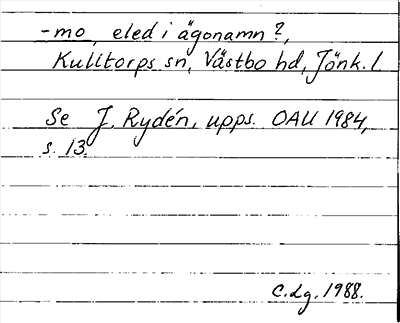 -mo, eled i ägonamn?,
Kulltorps sn, Västbo hd, Jönk. l.
Se J. Rydén, upps. OAU 1984,
s. 13.
C.dg. 1988.